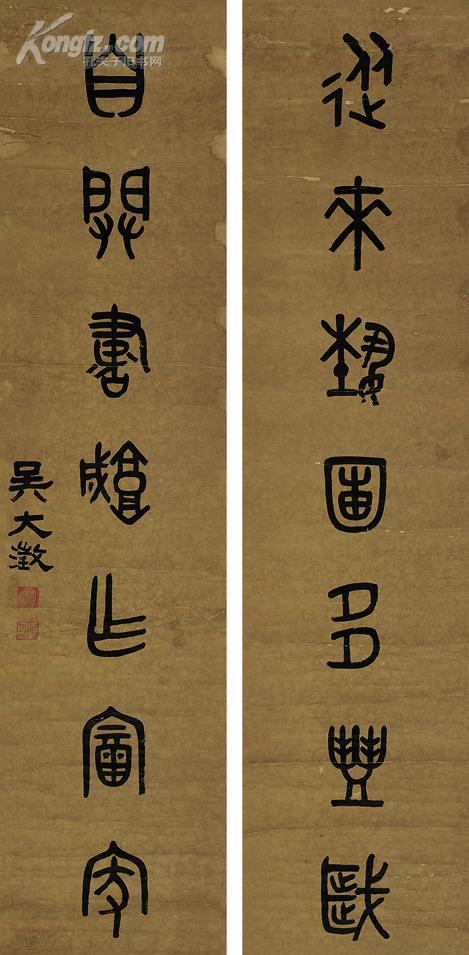 Kongfz.com
孔夫子旧书网
從來藝圃多豐歲
自闢書城作富家
吳大澂